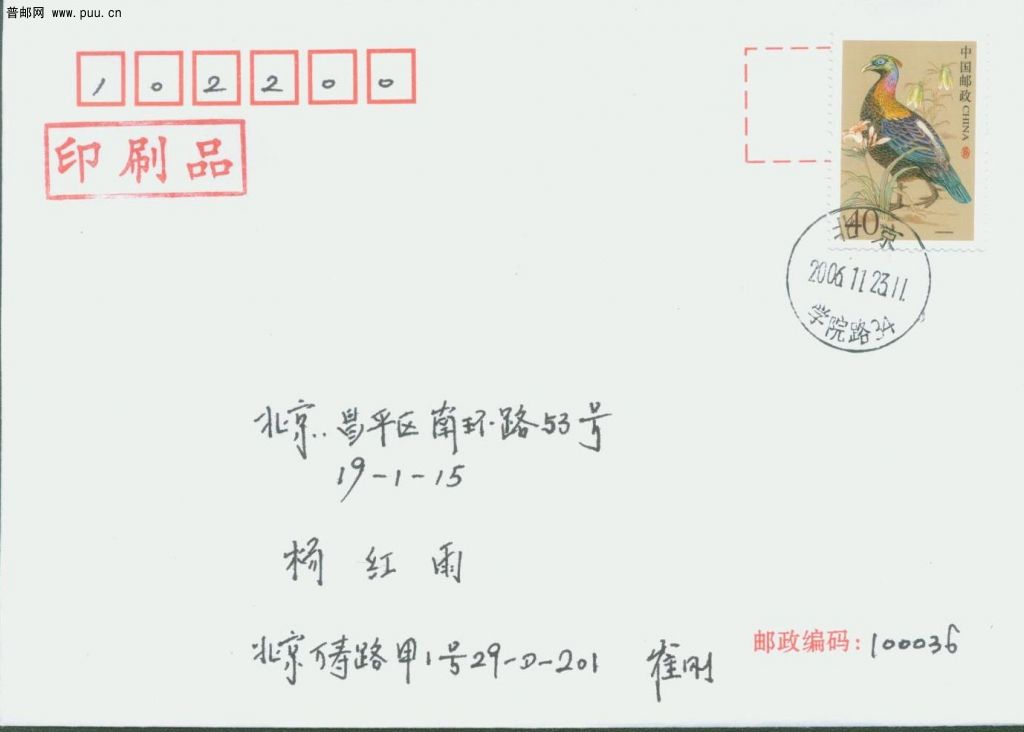 普邮网 www.puu.cn
102200
中国邮政 CHINA
印刷品
40
北京
2006.11.23.11
学院路34
北京..昌平区南环路53号
19-1-15
杨红雨
北京万寿路甲1号29-D-201 崔刚
邮政编码:100036